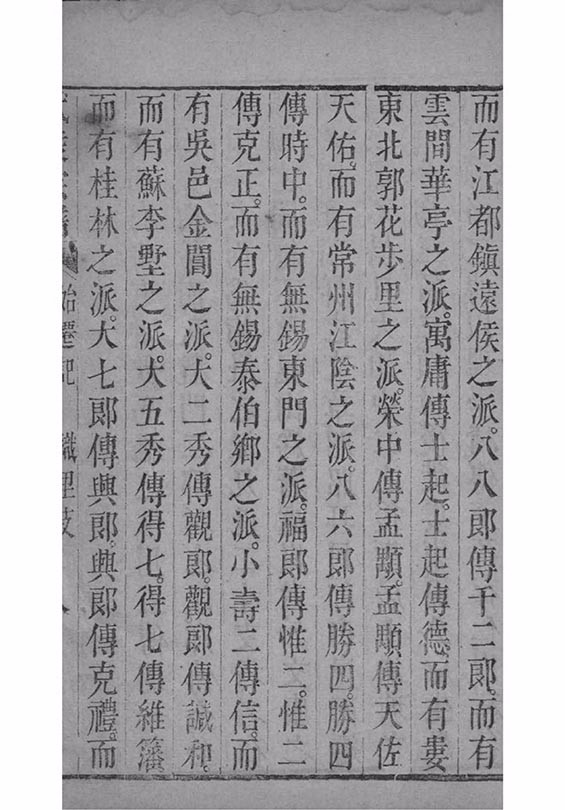 而有江都鎭遠侯之派。八八郞傳千二郞。而有
雲間華亭之派。寓庸傳士起。士起傳德。而有婁
東北郭花步里之派。榮中傳孟顒。孟顒傳天佐
天佑。而有常州江陰之派。八六郞傳勝四。勝四
傳時中。而有無錫東門之派。福郞傳惟二。惟二
傳克正。而有無錫泰伯鄕之派。小壽二傳信。而
有吳邑金閶之派。大二秀傳觀郞。觀郞傳誠和。
而有蘇李墅之派。大五秀傳得七。得七傳維藩
而有桂林之派。大七郞傳興郞。興郞傳克禮。而
始遷記